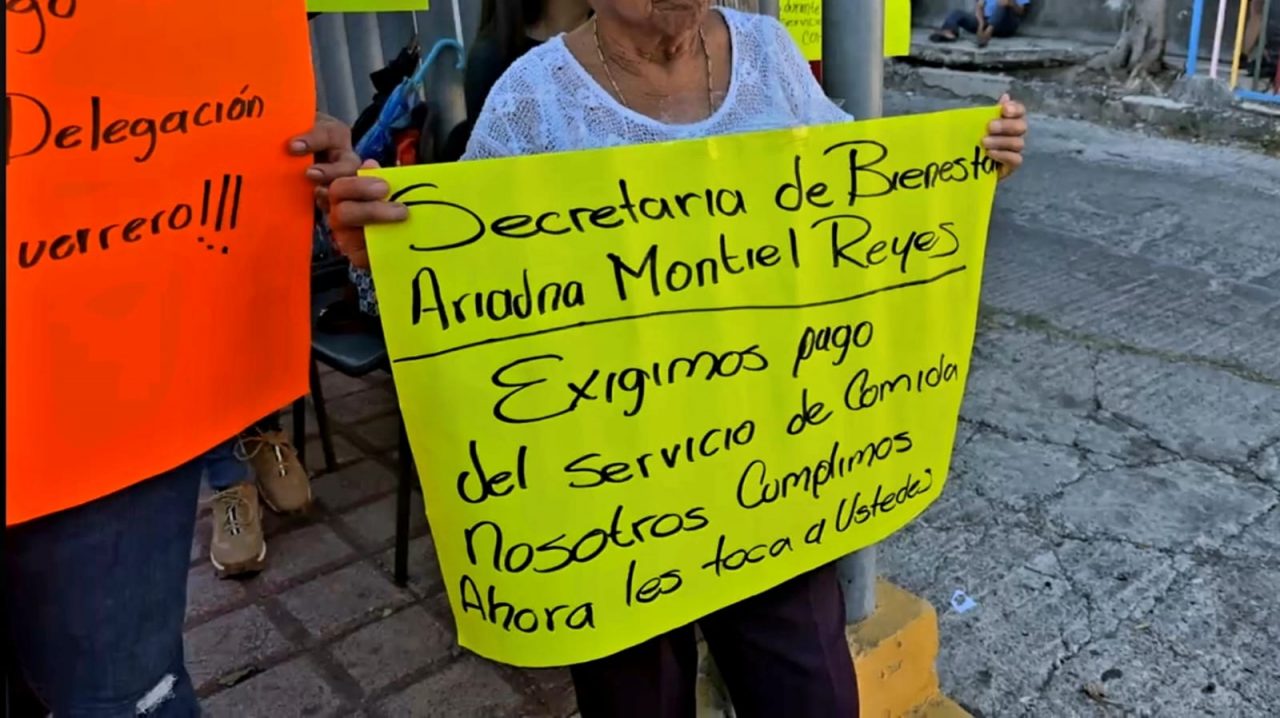 go
Delegación
varrero!!!
Secretaria de Bienestar
Ariadna Montiel Reyes
Exigimos pago
del servicio de Comida
Nosotros Cumplimos
Ahora les toca a Ustedes
durante
servicio